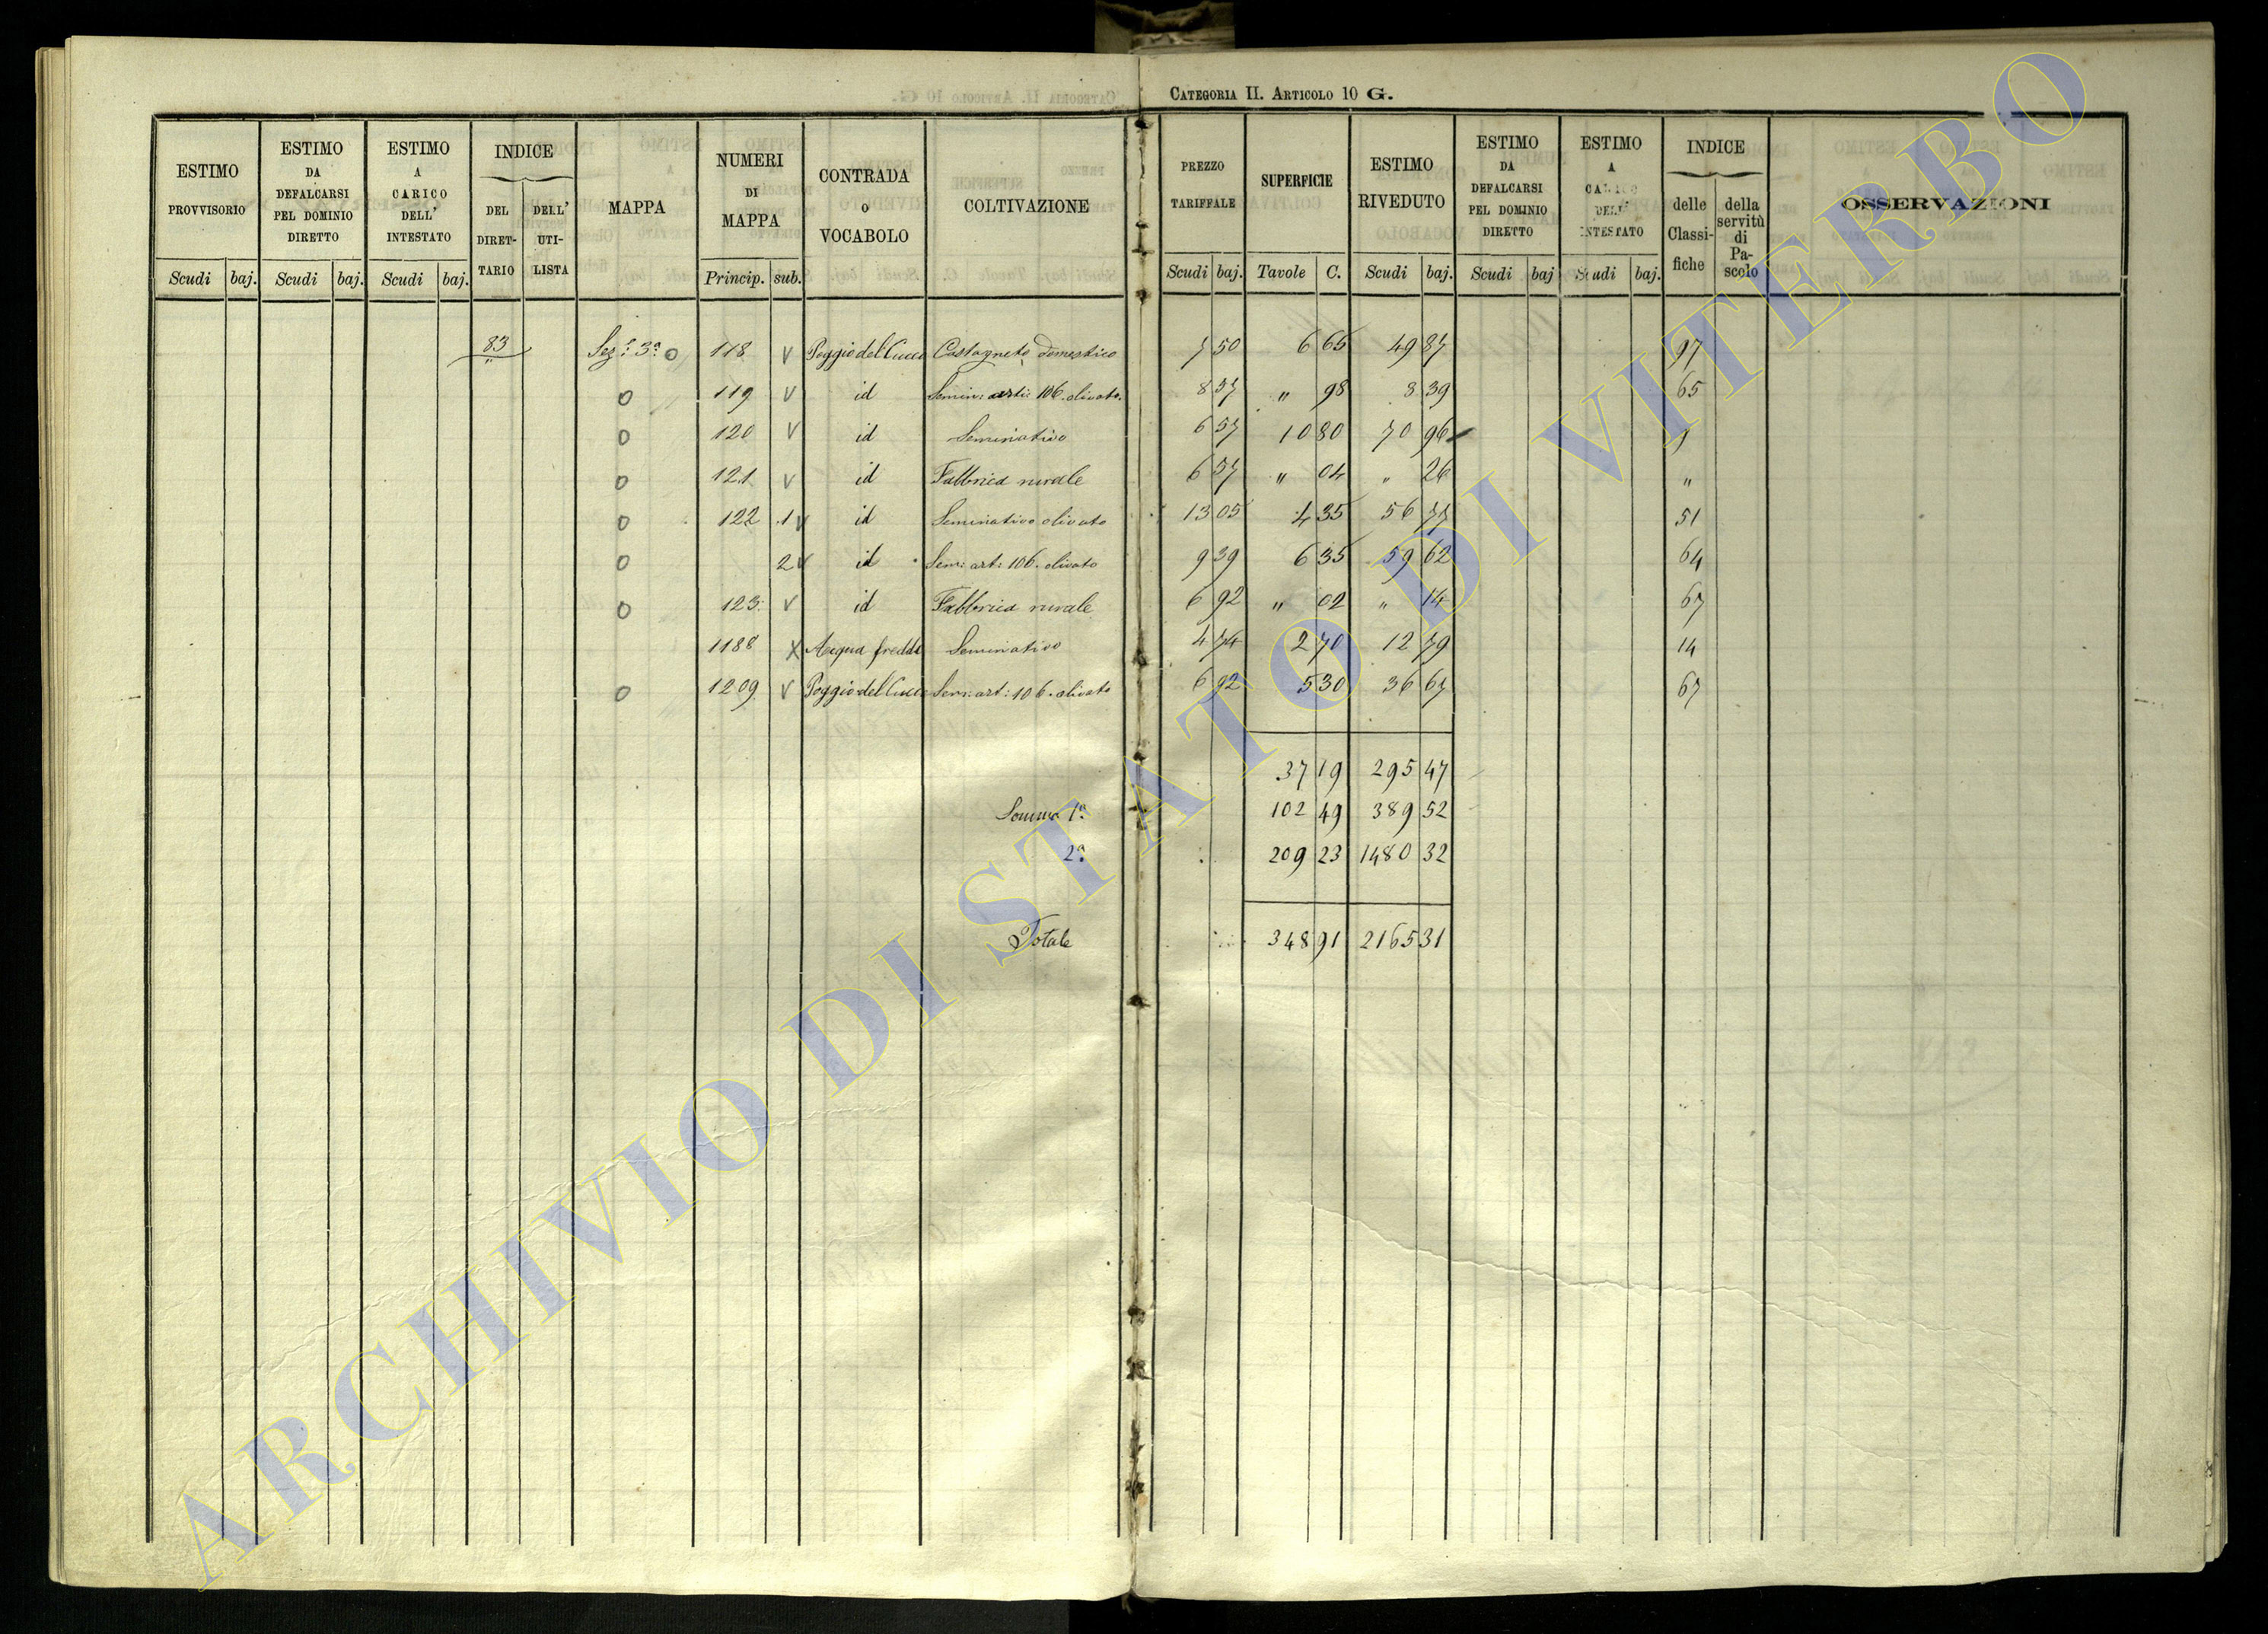 CATEGORIA II. ARTICOLO 10 G.
ESTIMO PROVVISORIO Scudi baj.
ESTIMO DA DEFALCARSI PEL DOMINIO DIRETTO Scudi baj.
ESTIMO A CARICO DELL' INTESTATO Scudi baj.
INDICE DEL DIRET-TARIO DELL' UTI-LISTA
MAPPA
NUMERI DI MAPPA Princip. sub.
CONTRADA O VOCABOLO
COLTIVAZIONE
PREZZO TARIFFALE Scudi baj.
SUPERFICIE Tavole C.
ESTIMO RIVEDUTO Scudi baj.
ESTIMO DA DEFALCARSI PEL DOMINIO DIRETTO Scudi baj
ESTIMO A CARICO DELL' INTESTATO Scudi baj.
INDICE delle Classi-fiche della servitù di Pa-scolo
OSSERVAZIONI
83 " Sez. 3a o 118 v Poggio del Cucco Castagneto domestico 7 50 6 65 49 87 97
o 119 v id Semin: arti: 106. olivato. 8 57 " 98 8 39 65
o 120 v id Seminativo 6 57 10 80 70 96 9
o 121 v id Fabbrica rurale 6 57 " 04 " 26 "
o 122 1 v id Seminativo olivato 13 05 4 35 56 77 51
o 2 v id Sem: art: 106. olivato 9 39 6 35 59 62 64
o 123 v id Fabbrica rurale 6 92 " 02 " 14 67
1188 x Acqua fredda Seminativo 4 74 2 70 12 79 14
o 1209 v Poggio del Cucco Sem: art: 106. olivato 6 92 5 30 36 67 67
37 19 295 47
Somma 1a 102 49 389 52
2a 209 23 1480 32
Totale 348 91 2165 31
ARCHIVIO DI STATO DI VITERBO